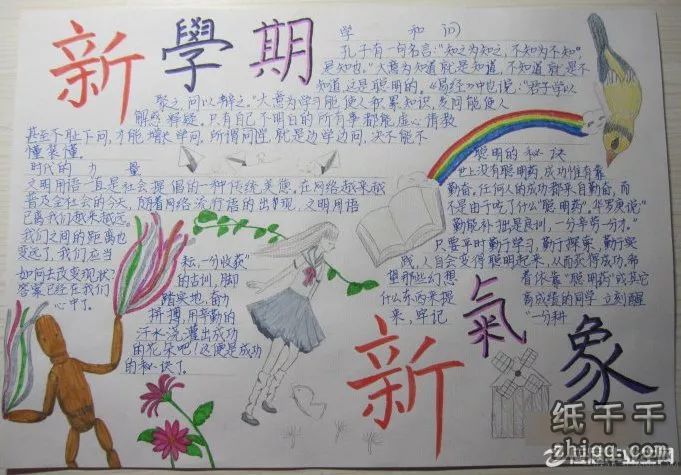 新學期
学和问
孔子有一句名言：“知之为知之，不知为不知。
是知也。”大意为知道就是知道，不知道就是不
知道，这是聪明的。《易经》中也说：“君子学以
聚之，问以辩之。”大意为学习能使人积累知识，发问能使人
解惑释疑。只有自己不明白的所有事都能虚心请教
甚至不耻下问，才能增长学问。所谓问学，就是边学边问，决不能不
懂装懂。
时代的力量
文明用语一直是社会提倡的一种传统美德，在网络越来越
普及全社会的今天，随着网络流行语的出现，文明用语
已离我们越来越远。
我们之间的距离也
变远了，我们应当
如何去改变现状？
答案已经在我们
心中了。
聪明的秘诀
世上没有聪明药，成功惟有靠
勤奋，任何人的成功都来自勤奋，而
不是由于吃了什么“聪明药”。华罗庚说“
勤能补拙是良训，一分辛劳一分才。”
只要平时勤于学习，勤于探索，勤于实
践，人自会变得聪明起来，从而获得成功。希
望那些幻想着依靠“聪明药”或其它
什么东西来提高成绩的同学立刻醒
来，牢记“一分耕
耘，一分收获”
的古训，脚
踏实地，奋力
拼搏，用辛勤的
汗水浇灌出成功
的花朵吧！这便是成功
的秘诀了。
新氣象
纸千千
zhiqq.com